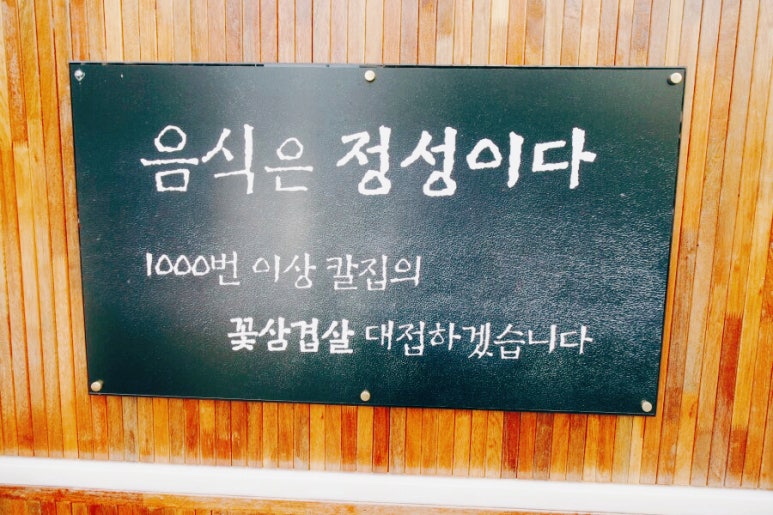 음식은 정성이다
1000번 이상 칼집의
꽃삼겹살 대접하겠습니다